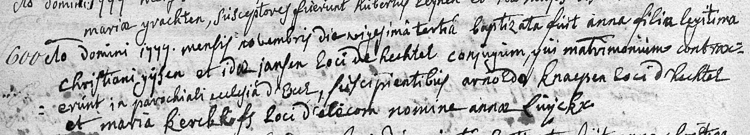 mariæ grachten, susceptores fuerunt hubertus
600 Ao domini 1744. mensis novembris die vigesimâ tertiâ baptizata fuit anna filia legitima
christiani gysen et idæ jansen loci de hechtel conjugum, qui matrimonium contrax=
=erunt in parochiali ecclesiâ d'exel, suscipientibus arnoldo knaepen loci d'hechtel
et maria kerckhofs loci d'elicom nomine annæ luijckx